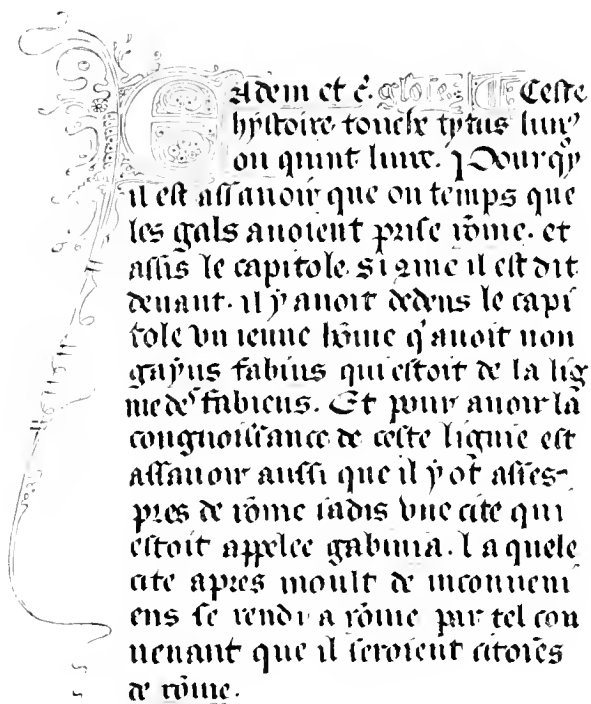 Eadem et c̄. glose. Ceste
hystoire touche tytus liuiꝰ
ou quint liure. Pourqͥy
il est assauoir que ou temps que
les gals auoient prise rōme. et
assis le capitole. si ꝯme il est dit
deuant. il y auoit dedens le capi
tole vn ieune hōme qͥ auoit non
gayus fabius qui estoit de la lig
nie des fabiens. Et pour auoir la
congnoissance de ceste lignie est
assauoir aussi que il y ot asses
pres de rōme iadis vne cite qui
estoit appelee gabinia. La quele
cite apres moult de inconueni
ens se rendi a rōme par tel con
uenant que il seroient citoiēs
de rōme.